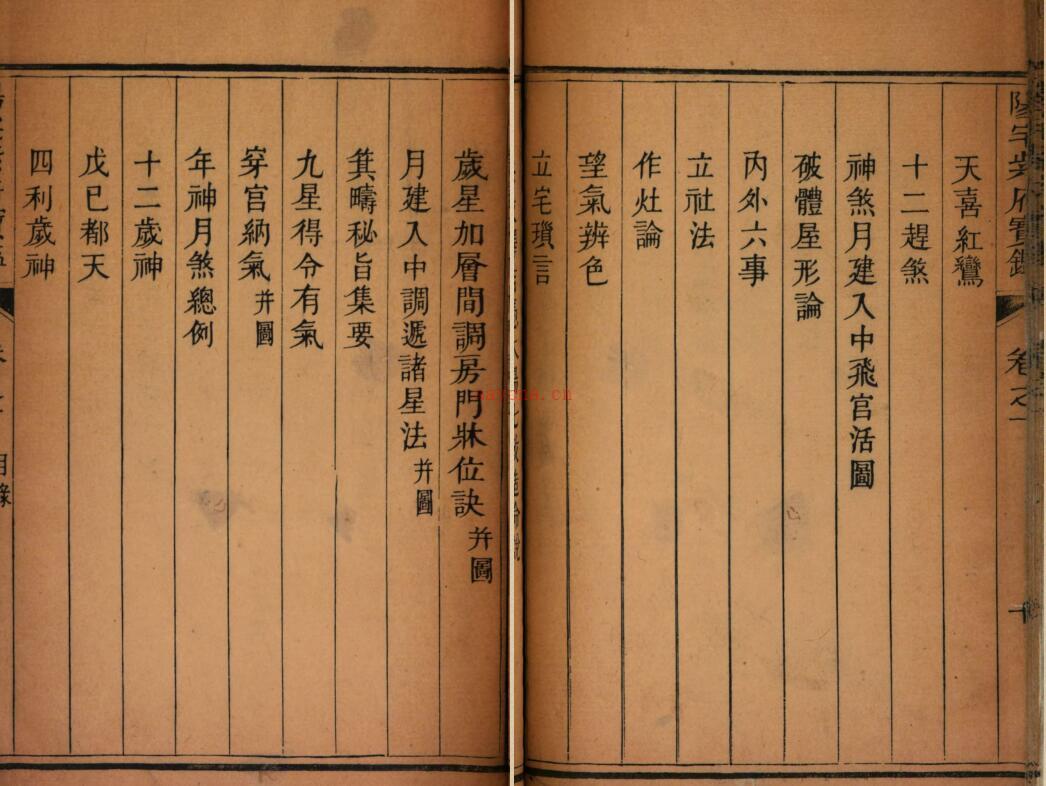 歲星加層間調房門牀位訣 并圖
月建入中調遞諸星法 并圖
箕疇秘旨集要
九星得令有氣
穿宮納氣 并圖
年神月煞總例
十二歲神
戊巳都天
四利歲神
陽宅紫府寶鑑 卷之一 十
天喜紅鸞
十二趕煞
神煞月建入中飛宮活圖
破體屋形論
內外六事
立社法
作灶論
望氣辨色
立宅瑣言
nayona.cn